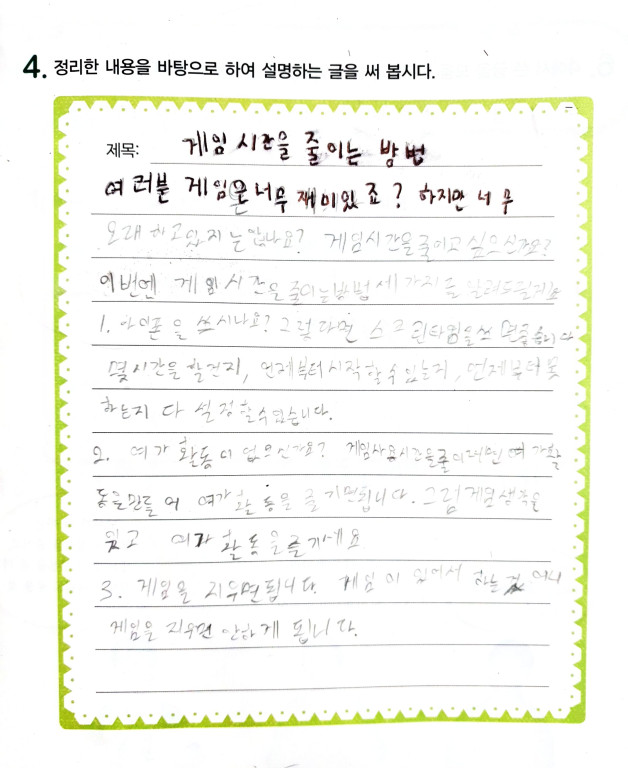 4. 정리한 내용을 바탕으로 하여 설명하는 글을 써 봅시다.
제목: 게임 시간을 줄이는 방법
여러분 게임은 너무 재미있죠? 하지만 너무
오래 하고있지는 않나요? 게임시간을 줄이고 싶으신가요?
이번엔 게임 시간을 줄이는 방법 세 가지를 알려드릴게요
1. 아이폰을 쓰시나요? 그렇다면 스크린타임을 쓰면 좋습니다
몇시간을 할건지, 언제부터 시작할 수 있는지, 언제부터 못
하는지 다 설정할 수 있습니다.
2. 여가 활동이 없으신가요? 게임사용시간을 줄이려면 여가활
동을 만들어 여가 활동을 즐기면 됩니다. 그럼 게임 생각을
잊고 여가 활동을 즐기세요
3. 게임을 지우면 됩니다. 게임이 있어서 하는 것 이니
게임을 지우면 안하게 됩니다.